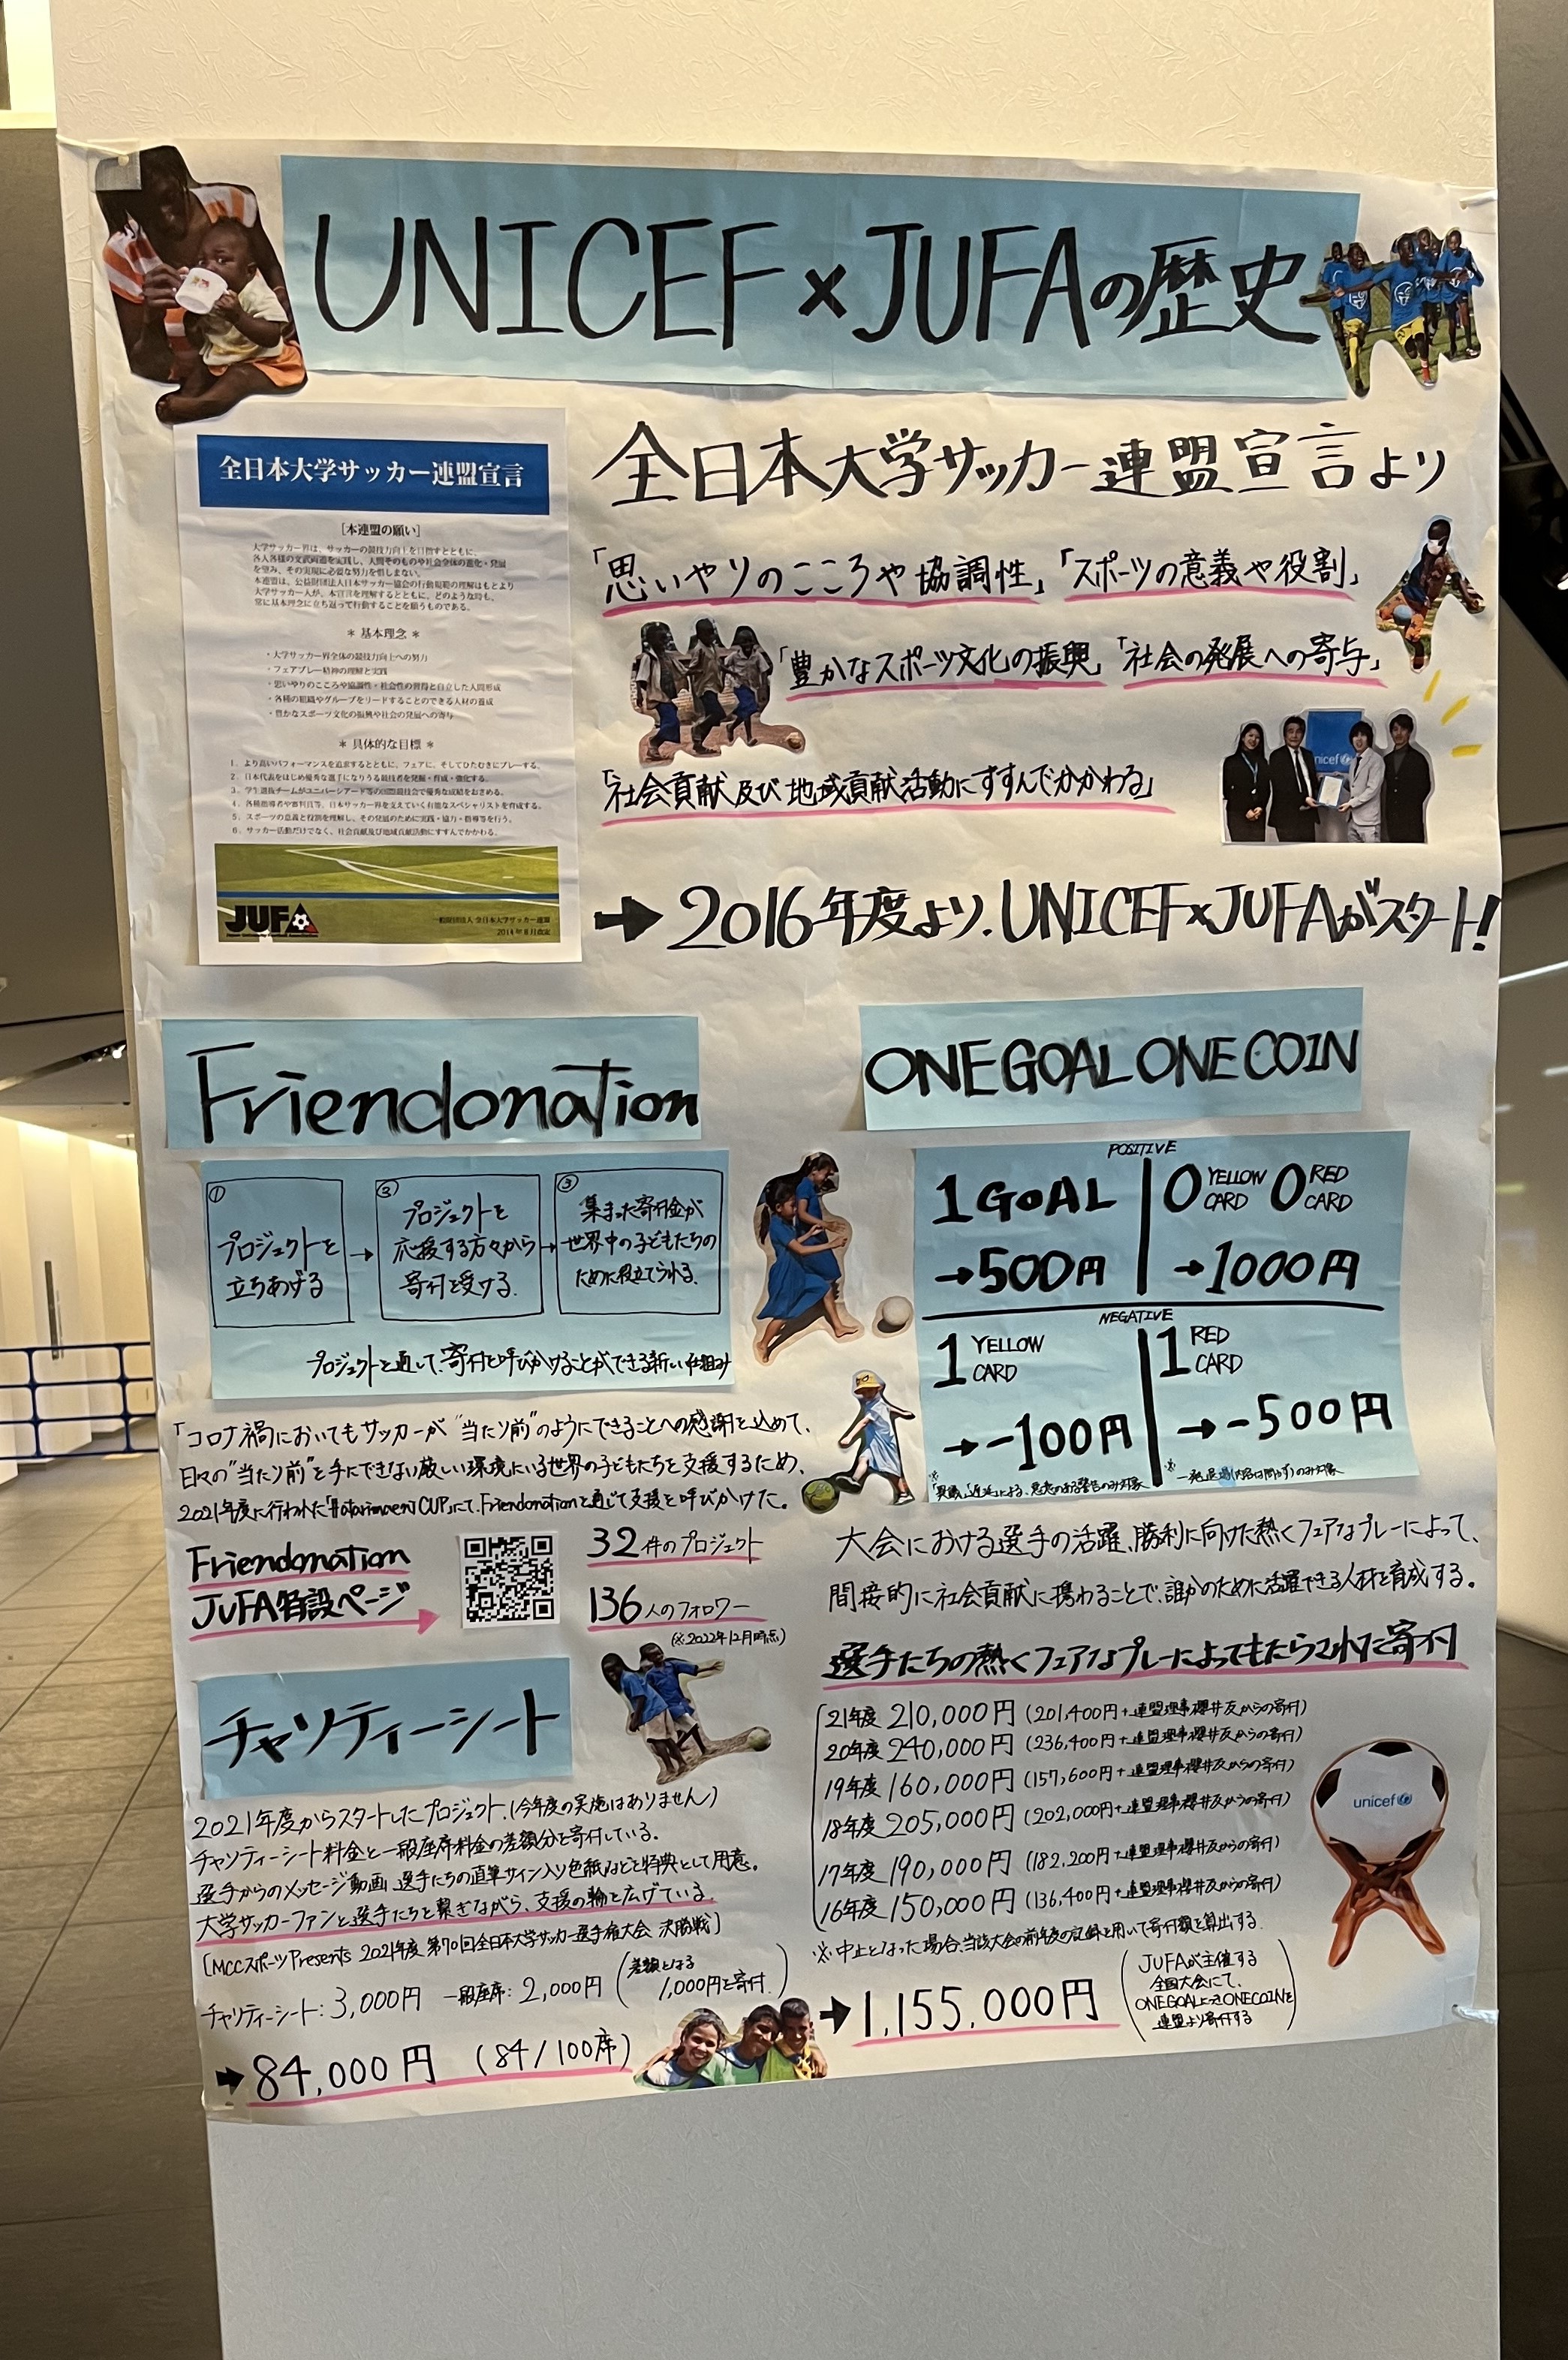 UNICEF×JUFAの歴史
全日本大学サッカー連盟宣言
[本連盟の願い]
大学サッカー界は、サッカーの競技力向上を目指すとともに、
各人各様の文武両道を実践し、人間そのものや社会全体の進化・発展
を望み、その実現に必要な努力を惜しまない。
本連盟は、公益財団法人日本サッカー協会の行動規範の理解はもとより
大学サッカー人が、本宣言を理解するとともに、どのような時も、
常に基本理念に立ち返って行動することを願うものである。
＊ 基本理念 ＊
・大学サッカー界全体の競技力向上への努力
・フェアプレー精神の理解と実践
・思いやりのこころや協調性・社会性の習得と自立した人間形成
・各種の組織やグループをリードすることのできる人材の養成
・豊かなスポーツ文化の振興や社会の発展への寄与
＊ 具体的な目標 ＊
1．より高いパフォーマンスを追求するとともに、フェアに、そしてひたむきにプレーする。
2．日本代表をはじめ優秀な選手になりうる競技者を発掘・育成・強化する。
3．学生選抜チームがユニバーシアード等の国際競技会で優秀な成績をおさめる。
4．各種指導者や審判員等、日本サッカー界を支えていく有能なスペシャリストを育成する。
5．スポーツの意義と役割を理解し、その発展のために実践・協力・指導等を行う。
6．サッカー活動だけでなく、社会貢献及び地域貢献活動にすすんでかかわる。
JUFA
一般財団法人 全日本大学サッカー連盟
2014年8月改定
全日本大学サッカー連盟宣言より
「思いやりのこころや協調性」「スポーツの意義や役割」
「豊かなスポーツ文化の振興」「社会の発展への寄与」
「社会貢献及び地域貢献活動にすすんでかかわる」
unicef
→2016年度より、UNICEF×JUFAがスタート!
Friendonation
① プロジェクトを
立ちあげる
→
② プロジェクトを
応援する方々から
寄付を受ける。
→
③ 集まった寄付金が
世界中の子どもたちの
ために役立てられる。
プロジェクトを通して、寄付を呼びかけることができる新しい仕組み
「コロナ禍においてもサッカーが"当たり前"のようにできることへの感謝を込めて、
日々の"当たり前"を手にできない厳しい環境にいる世界の子どもたちを支援するため、
2021年度に行われた「#atarimaeni CUP」にて、Friendonationを通じて支援を呼びかけた。
Friendonation
JUFA特設ページ
32件のプロジェクト
136人のフォロワー
(※2022年12月時点)
チャリティーシート
2021年度からスタートしたプロジェクト。(今年度の実施はありません)
チャリティーシート料金と一般座席料金の差額分を寄付している。
選手からのメッセージ動画、選手たちの直筆サイン入り色紙などを特典として用意。
大学サッカーファンと選手たちを繋ぎながら、支援の輪を広げている。
[MCCスポーツPresents 2021年度 第70回全日本大学サッカー選手権大会 決勝戦]
チャリティーシート:3,000円 一般座席:2,000円 (差額となる
1,000円を寄付)
→84,000円 (84/100席)
ONE GOAL ONE COIN
POSITIVE
1 GOAL
→500円
0 YELLOW CARD 0 RED CARD
→1000円
NEGATIVE
1 YELLOW CARD
→-100円
※「異議」「遅延」による、悪意のある警告のみ対象
1 RED CARD
→-500円
※一発退場(内容は問わず)のみ対象
大会における選手の活躍、勝利に向けた熱くフェアなプレーによって、
間接的に社会貢献に携わることで、誰かのために活躍できる人材を育成する。
選手たちの熱くフェアなプレーによってもたらされた寄付
21年度 210,000円 (201,400円+連盟理事櫻井友からの寄付)
20年度 240,000円 (236,400円+連盟理事櫻井友からの寄付)
19年度 160,000円 (157,600円+連盟理事櫻井友からの寄付)
18年度 205,000円 (202,000円+連盟理事櫻井友からの寄付)
17年度 190,000円 (182,200円+連盟理事櫻井友からの寄付)
16年度 150,000円 (136,400円+連盟理事櫻井友からの寄付)
※中止となった場合、当該大会の前年度の記録を用いて寄付額を算出する。
→1,155,000円
(JUFAが主催する
全国大会にて、
ONE GOALにつきONE COINを
連盟より寄付する)
unicef